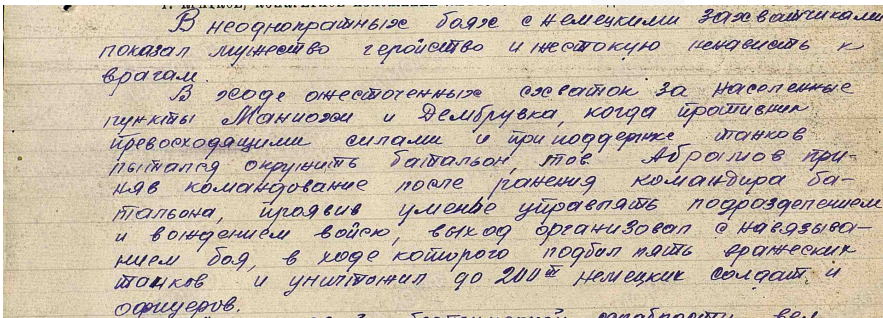 В неоднократных боях с немецкими захватчиками
показал мужество геройство и жестокую ненависть к
врагам.
В ходе ожесточенных схваток за населенные
пункты Маниожи и Дембрувка, когда противник
превосходящими силами и при поддержке танков
пытался окружить батальон, тов Абрамов при-
няв командование после ранения командира ба-
тальона, проявив умение управлять подразделением
и вождением войск, выход организовал с навязыва-
нием боя, в ходе которого подбил пять вражеских
танков и уничтожил до 200 немецких солдат и
офицеров.